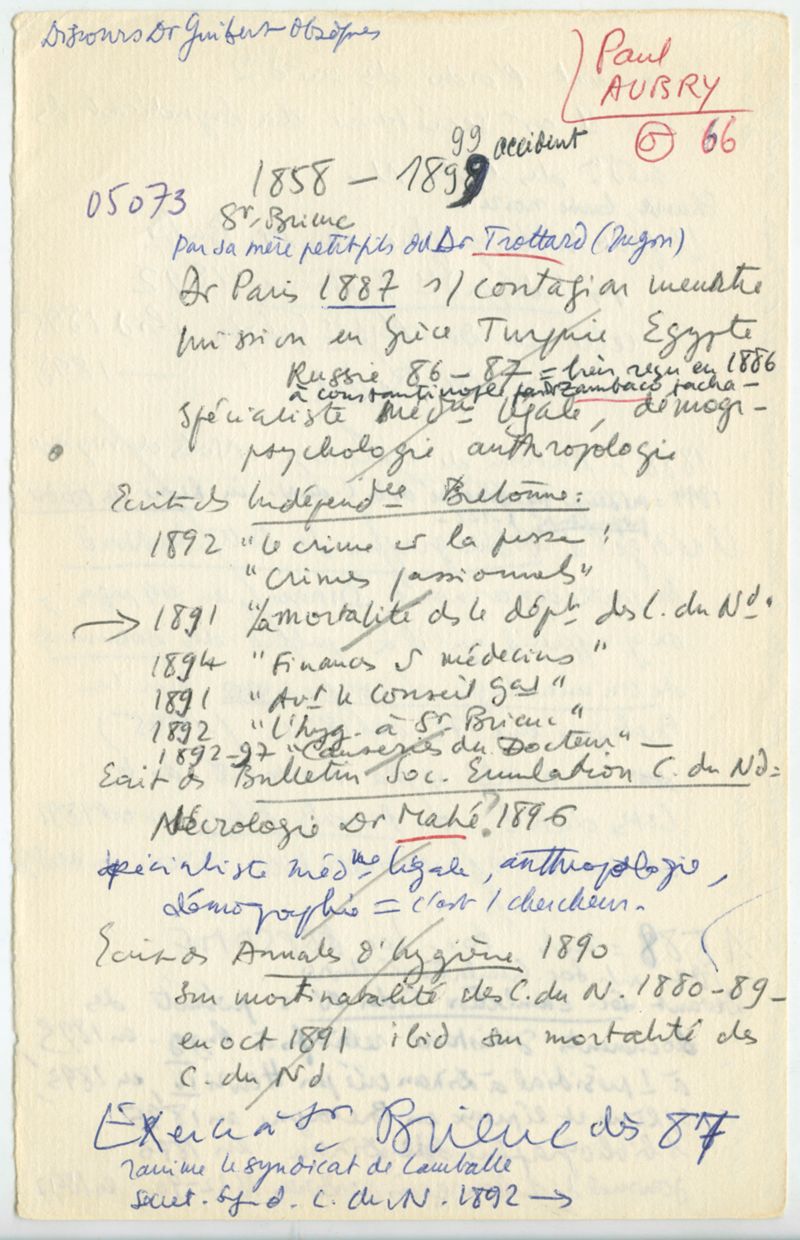 Discours Dr Guibert Obsèques
Paul
AUBRY
66
99 accident
1858 – 1899
05073
St. Brieuc
par sa mère petit fils du Dr Trottard (Jugon)
Dr Paris 1887 s/ contagion meurtre
mission en Grèce Turquie Egypte
Russie 86 – 87 = bien reçu en 1886
à constantinople par Zambaco pacha –
spécialiste Médne légale, démogr –
psychologie anthropologie
Ecrit ds Indépendce Bretonne :
1892 "Le crime et la presse !
"Crimes passionnels"
→ 1891 "La mortalité ds le dépt. des C. du Nd."
1894 "Finances et médecins"
1891 "Avt le Conseil Gal"
1892 "L'hyg. à St. Brieuc"
1892-97 "Causeries du Docteur" –
Ecrit ds Bulletin Soc. Emulation C. du Nd =
Nécrologie Dr Mahé ? 1896
spécialiste médne légale, anthropologie,
démographie = c'est 1 chercheur.
Ecrit ds Annales d'hygiène 1890
sur mortinatalité des C. du N. 1880-89 –
en oct 1891 ibid sur mortalité des
C. du Nd
Exerce à St Brieuc dès 87
ranime le syndicat de Lamballe
secret. Synd. C. du N. 1892 →